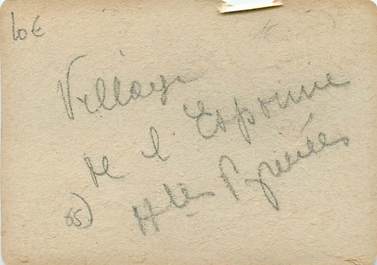 10€
Village
de l'Esponne
65) Htes Pyrénées